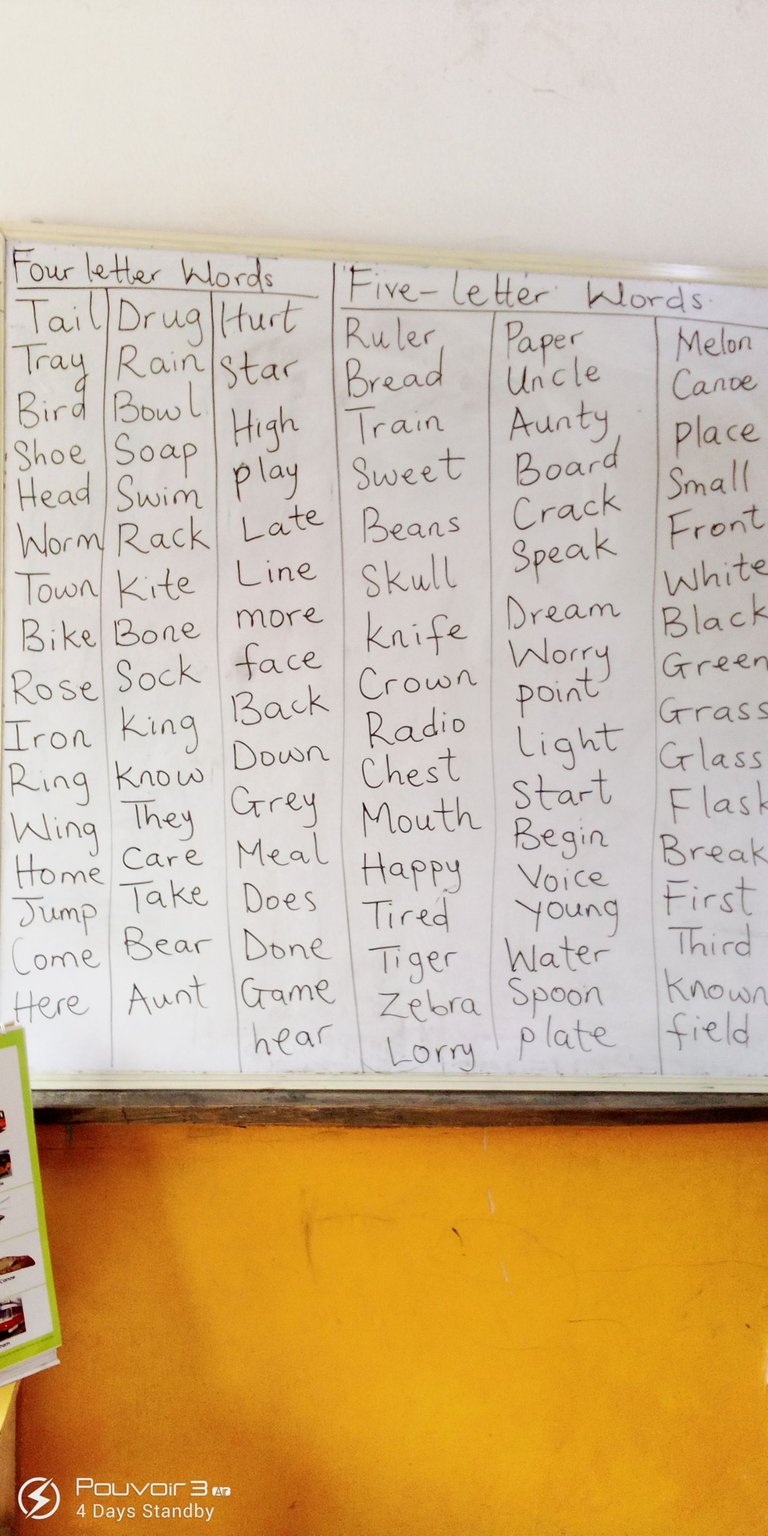 Four letter Words
Tail
Tray
Bird
Shoe
Head
Worm
Town
Bike
Rose
Iron
Ring
Wing
Home
Jump
Come
Here
Drug
Rain
Bowl
Soap
Swim
Rack
Kite
Bone
Sock
King
Know
They
Care
Take
Bear
Aunt
Hurt
Star
High
play
Late
Line
more
face
Back
Down
Grey
Meal
Does
Done
Game
hear
Five-letter Words
Ruler
Bread
Train
Sweet
Beans
Skull
Knife
Crown
Radio
Chest
Mouth
Happy
Tired
Tiger
Zebra
Lorry
Paper
Uncle
Aunty
Board
Crack
Speak
Dream
Worry
point
Light
Start
Begin
Voice
Young
Water
Spoon
plate
Melon
Canoe
Place
Small
Front
White
Black
Green
Grass
Glass
Flask
Break
First
Third
Known
field
Canoe
Pouvoir 3 Air
4 Days Standby